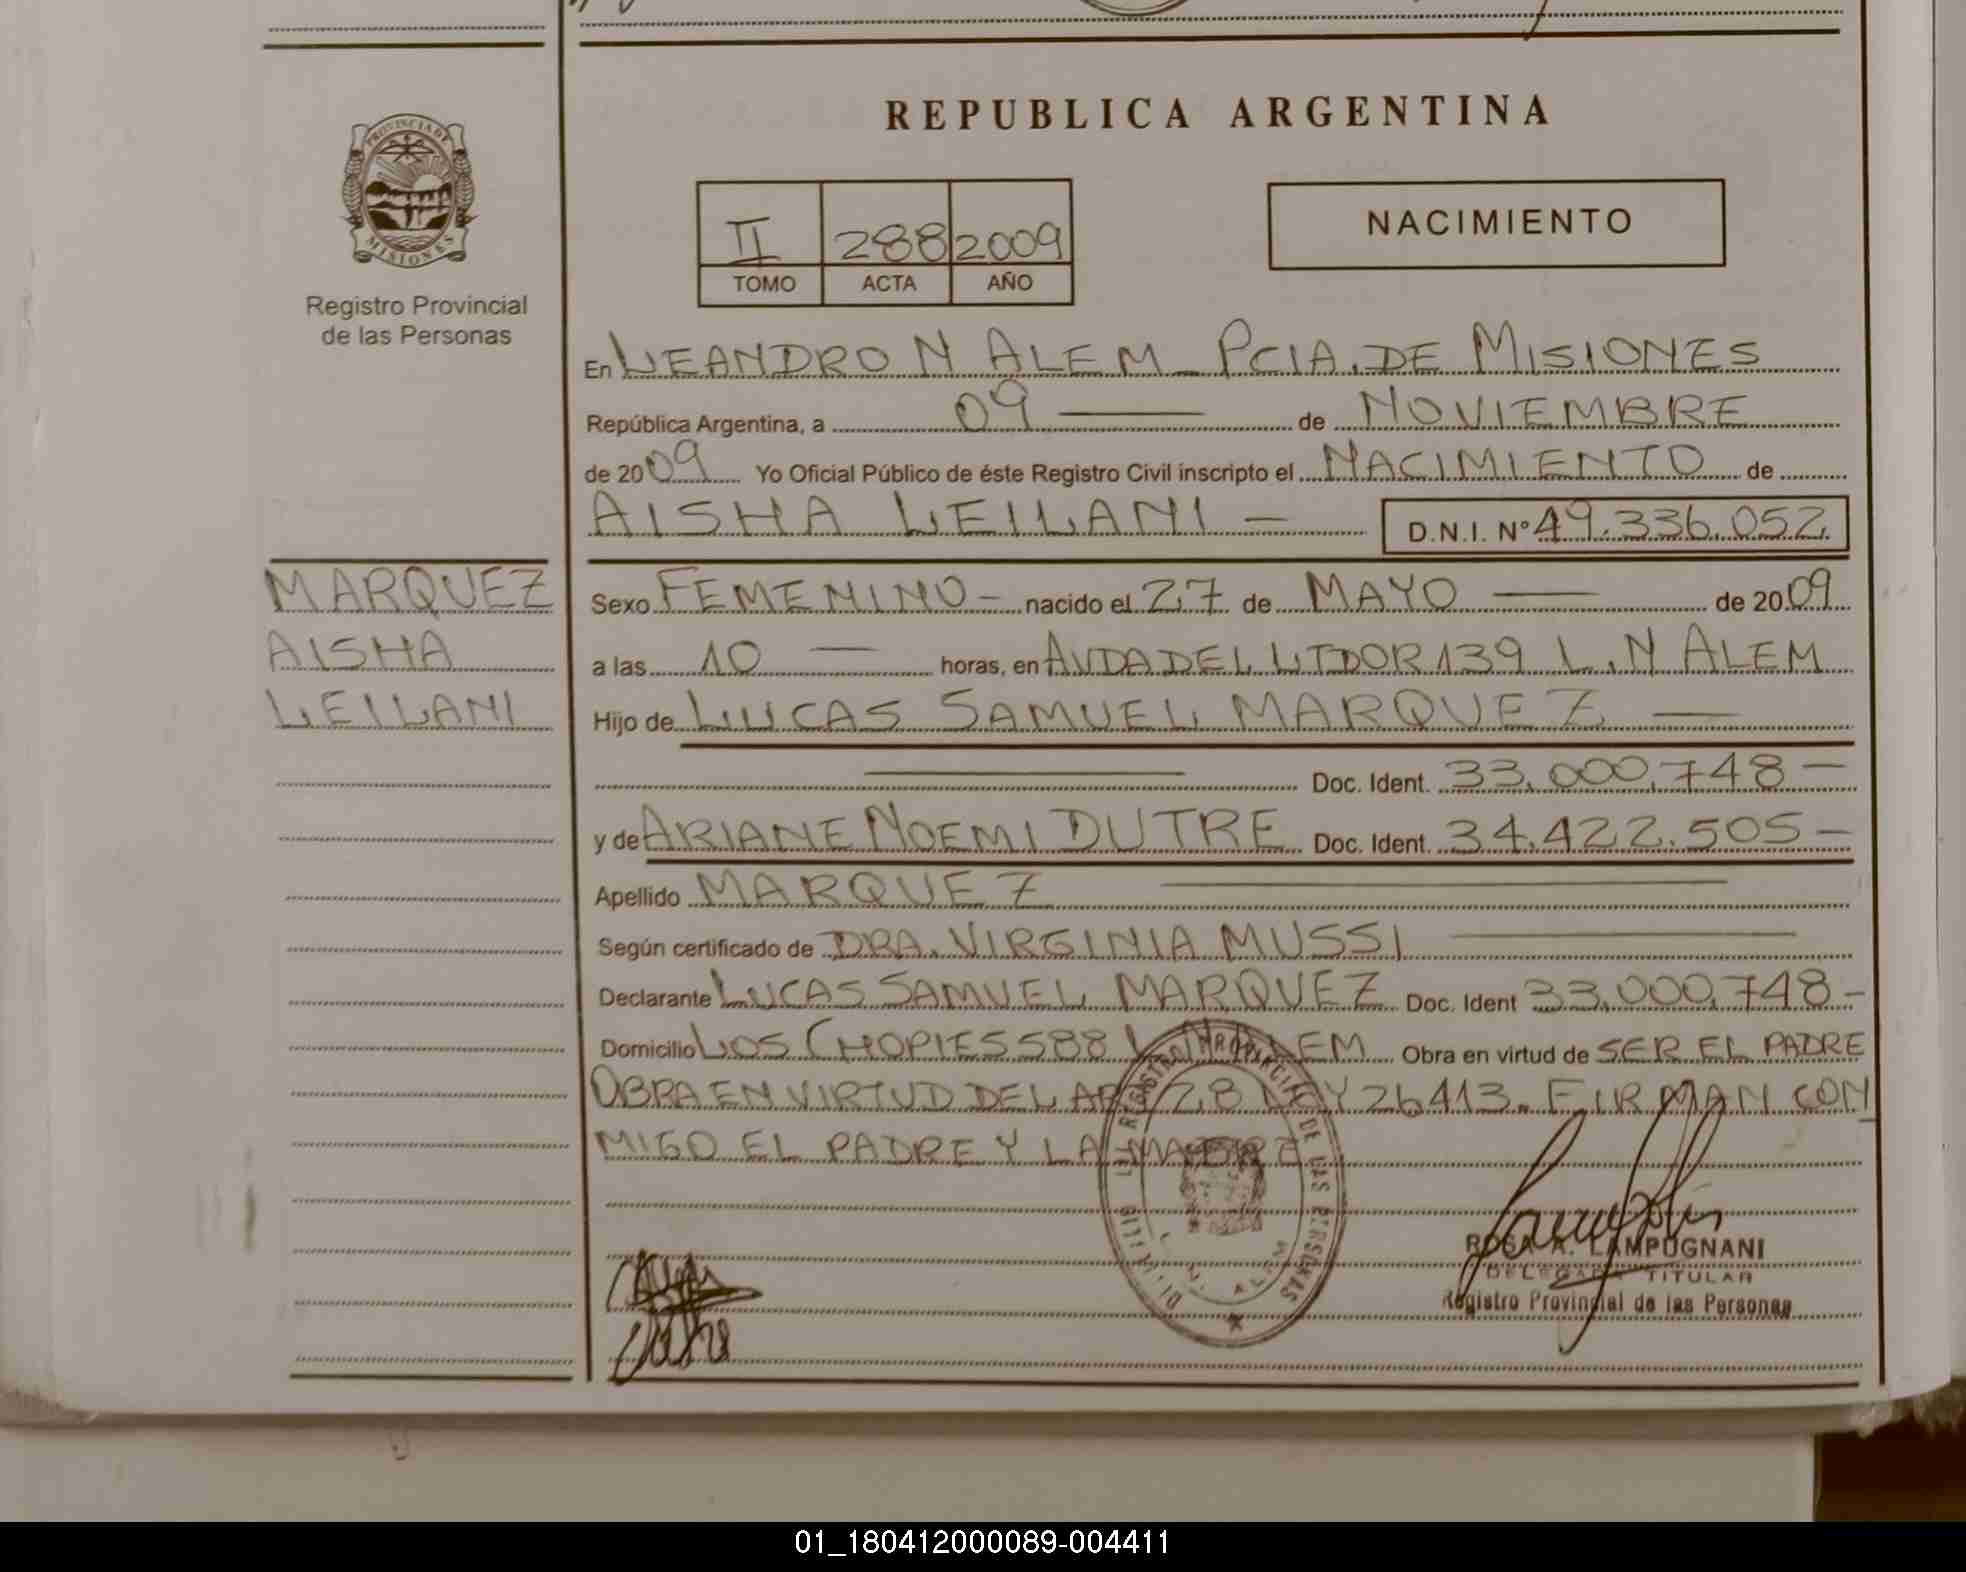 REPUBLICA ARGENTINA
PROVINCIA DE MISIONES
Registro Provincial
de las Personas
II 288 2009
TOMO ACTA AÑO
NACIMIENTO
En LEANDRO N ALEM - PCIA. DE MISIONES
República Argentina, a 09 de NOVIEMBRE
de 2009 Yo Oficial Público de éste Registro Civil inscripto el NACIMIENTO de
AISHA LEILANI - D.N.I. N° 49.336.052
MARQUEZ
AISHA
LEILANI
Sexo FEMENINO - nacido el 27 de MAYO de 2009
a las 10 horas, en AVDA DEL LTDOR 139 L.N ALEM
Hijo de LUCAS SAMUEL MARQUEZ
Doc. Ident. 33.000.748 -
y de ARIANE NOEMI DUTRE Doc. Ident. 34.422.505 -
Apellido MARQUEZ
Según certificado de DRA. VIRGINIA MUSSI
Declarante LUCAS SAMUEL MARQUEZ Doc. Ident 33.000.748 -
Domicilio LOS CHOPIES 588 L.N ALEM Obra en virtud de SER EL PADRE
OBRA EN VIRTUD DEL ART 28 LEY 26413. FIRMAN CON
MIGO EL PADRE Y LA MADRE
REGISTRO PROVINCIAL DE LAS PERSONAS
L. N. ALEM
ROSA A. LAMPUGNANI
DELEGADA TITULAR
Registro Provincial de las Personas
01_180412000089-004411